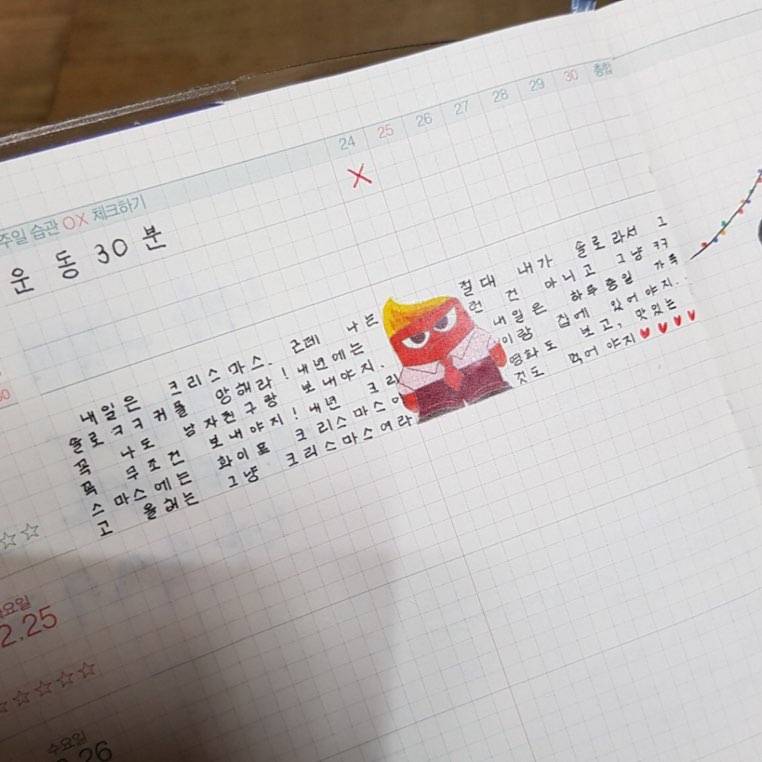 24 25 26 27 28 29 30 총합
X
주일 습관 OX 체크하기
운동 30분
내일은 크리스마스. 근데 나는
솔로ㅋㅋ 커플 망해라! 내년에는
꼭 나도 남자친구랑 보내야지.
꼭 무조건 보내야지! 내년 크리
스마스에는 화이트 크리스마스이
고 올해는 그냥 크리스마스여라
절대 내가 솔로라서 그
런 건 아니고 그냥 ㅋㅋ
내일은 하루종일 가족
이랑 집에 있어야지.
영화도 보고, 맛있는
것도 먹어야지♥♥♥♥
요일
2.25
수요일
26